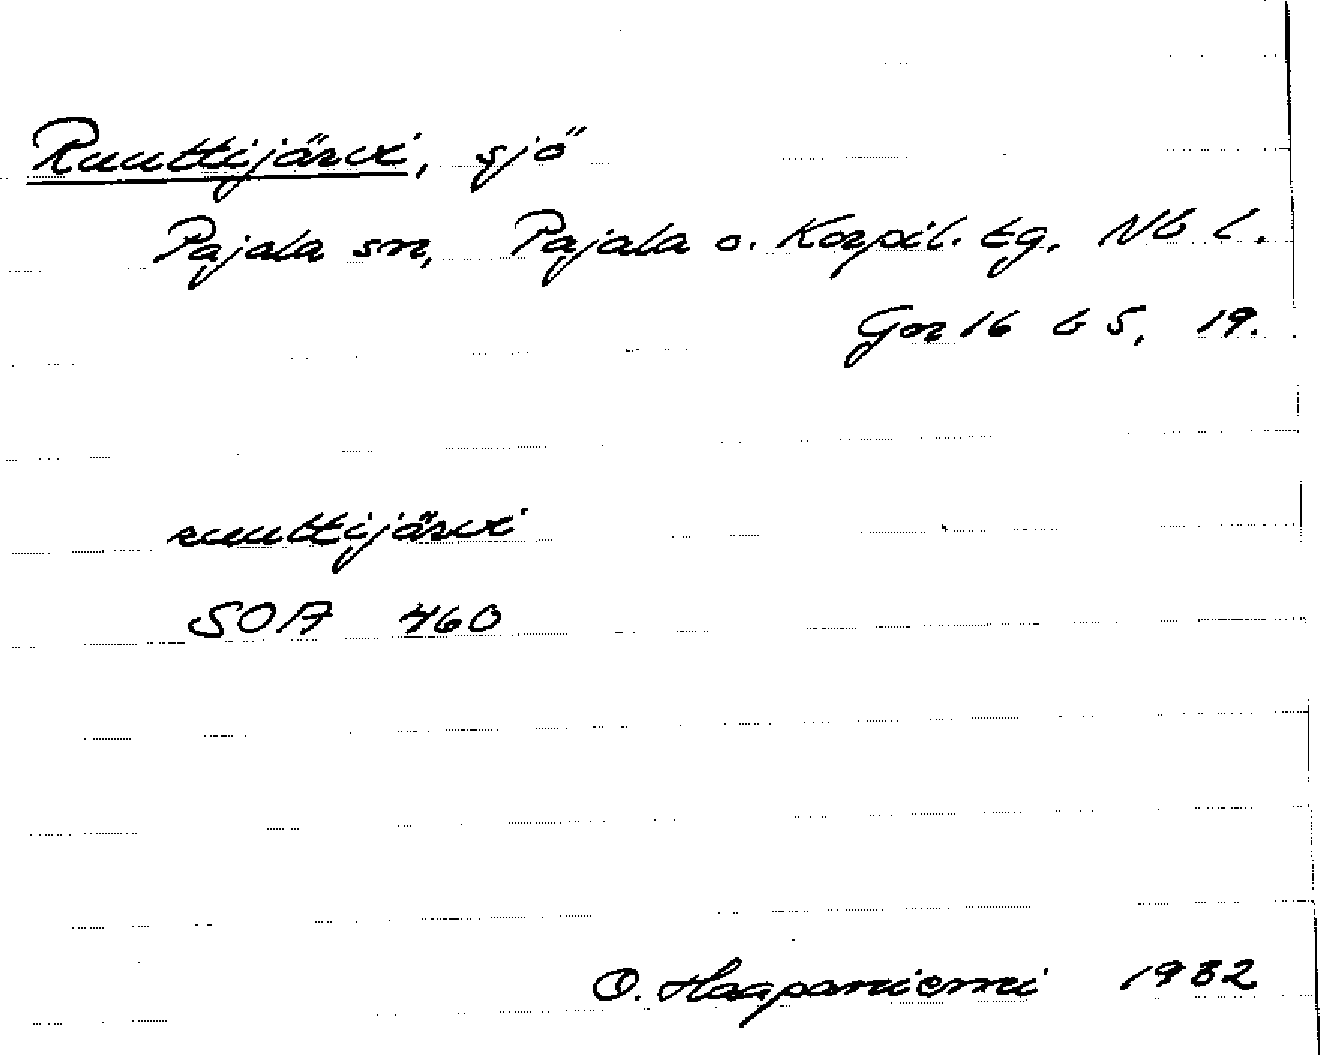 Ruuttijärvi, sjö
Pajala sn, Pajala o. Korpil. tg. Nb l.
Gnr 16 b 5, 19.
ruuttijärvi
SOA 460
O. Haapaniemi 1982